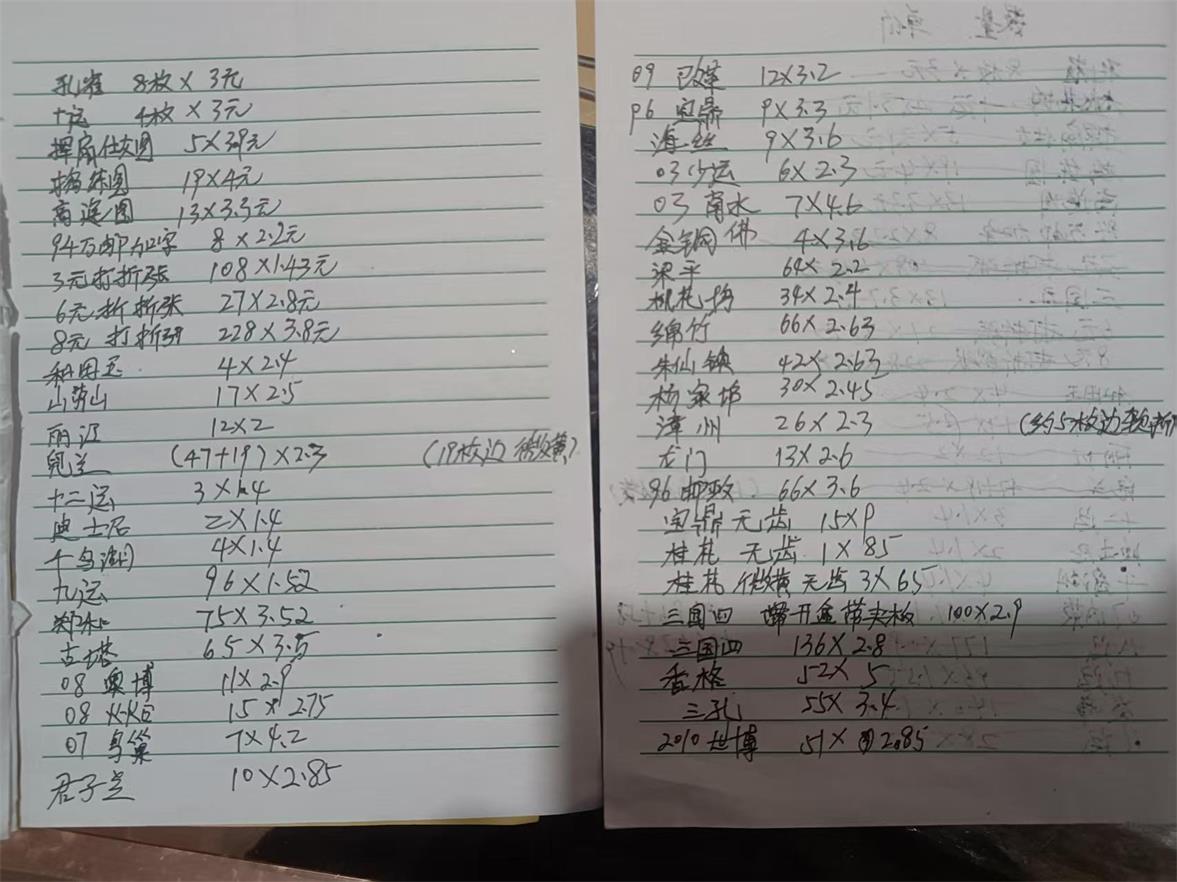 孔雀 8枚 × 3元
十运 4枚 × 3元
挥扇仕女图 5×39元
捣练图 19×4元
高逸图 13×3.3元
94万邮 加字 8×2.2元
3元打折张 108×1.43元
6元折 折张 27×2.8元
8元 打折张 228×3.8元
和田玉 4×2.4
山茶 17×2.5
丽江 12×2
兜兰 (47+19)×2.3 (19枚边微黄)
十二运 3×1.4
迪士尼 2×1.4
千岛湖 4×1.4
九运 96×1.52
郑和 75×3.52
古塔 65×3.5
08 奥博 11×2.9
08 火炬 15×2.75
07 鸟巢 7×4.2
君子兰 10×2.85
数量 单价
09 12×3.2
96 宝鼎 9×3.3
海丝 9×3.6
03少运 6×2.3
03 南水 7×4.6
金铜佛 4×3.6
梁平 64×2.2
桃花坞 34×2.4
绵竹 66×2.63
朱仙镇 42×2.63
杨家埠 30×2.45
漳州 26×2.3 (约5枚边
龙门 13×2.6
96邮政 66×3.6
宝鼎 无齿 15×9
桂花 无齿 1×85
桂花 微黄 无齿 3×65
三国四 带开盒带夹板 100×2.9
三国四 136×2.8
香格 52×5
三孔 55×3.4
2010世博 51×2.85